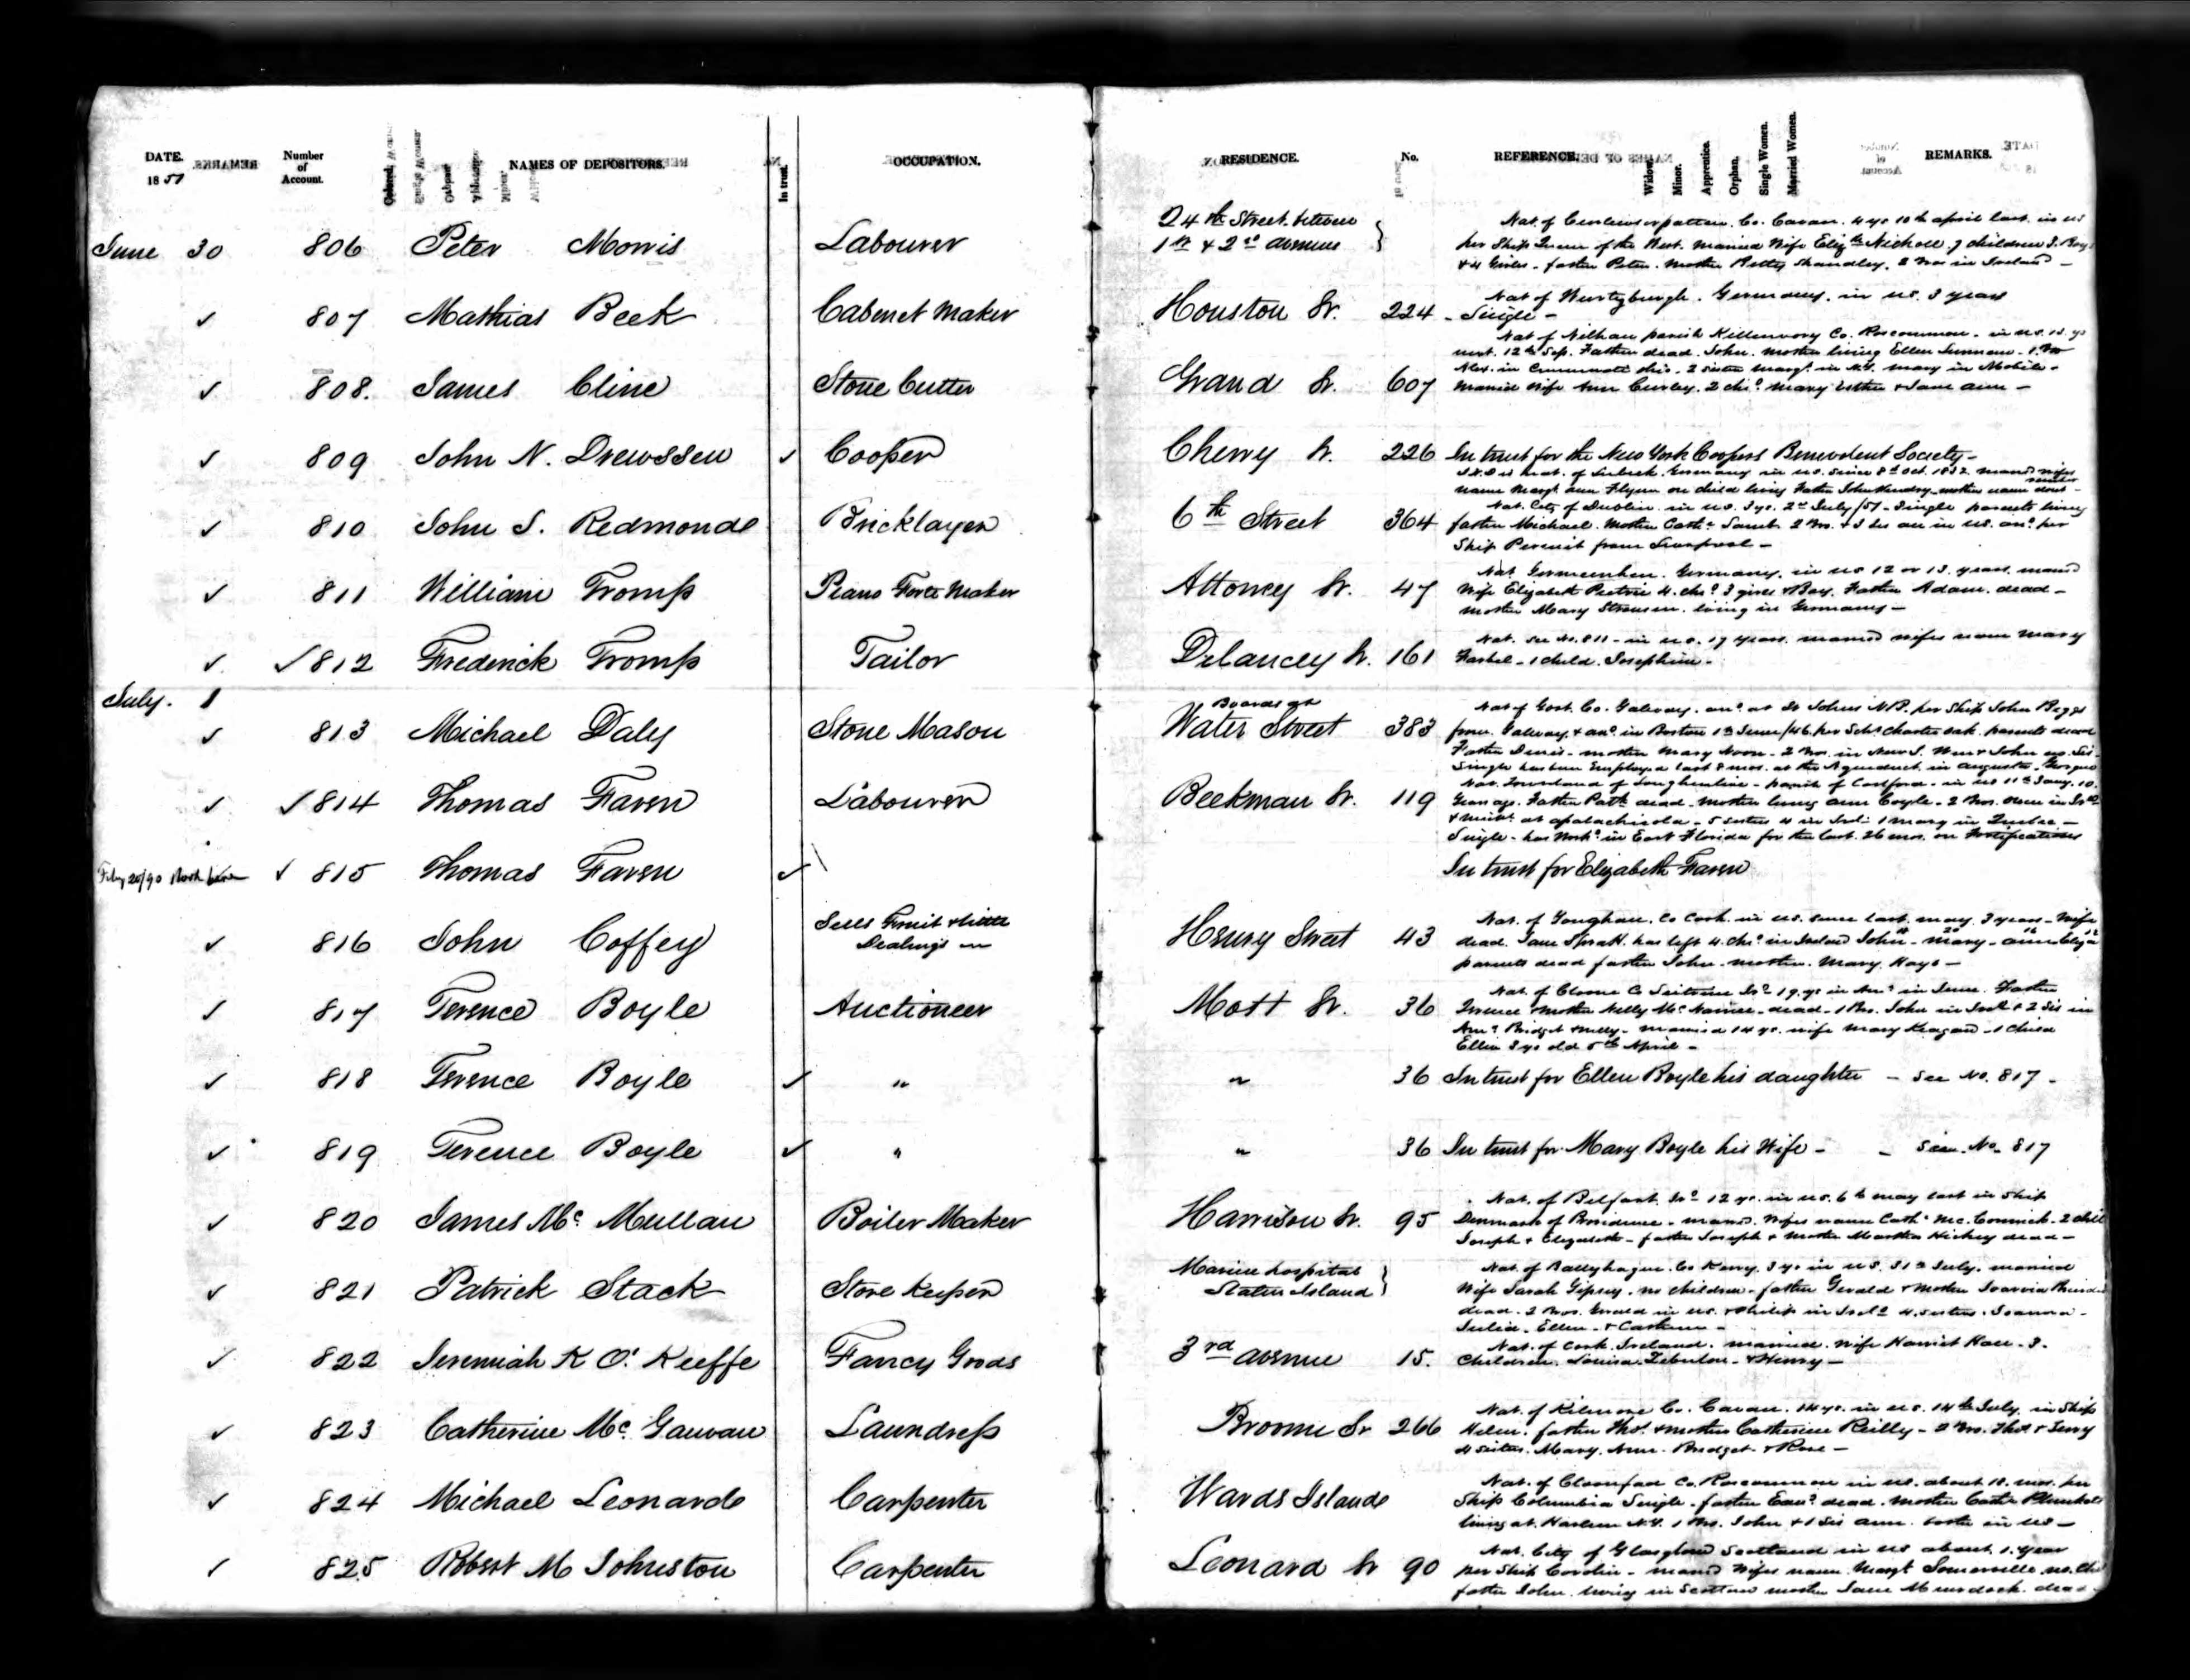 DATE. REMARKS Number of Account. NAMES OF DEPOSITORS. In trust. OCCUPATION. RESIDENCE. No. REFERENCE. Widow. Minor. Apprentice. Orphan. Single Women. Married Women. REMARKS.
1851
June 30 806 Peter Morris Labourer 24th Street between 1st & 2nd Avenue
Nat of Co. Cavan. 4 ys 10th april last in us
per Ship Queen of the West. married Wife Elizth Nicholl. 7 children 3. Boys
& 4 Girls - father Peter. mother Betty Shandley. 2 Bros in Ireland -
807 Mathias Beek Cabenet Maker Houston Sr. 224
Nat of Wurtzburgh. Germany. in us. 3 years
- Single -
808. James Cline Stone Cutter Grand Sr. 607
Nat of parish Co. Roscommon. in us. 13. ys
next. 12th Sep. Father dead. John. mother living Ellen 1. Bro
Alex. in Ohio. 2 sister Margt. in N.Y. Mary in Mobile -
Married Wife Ann Curley. 2 chn. Mary Esther & Jane Ann -
809 John N. Drewssen Cooper Cherry Sr. 226 In trust for the New York Coopers Benevolent Society -
Nat. of Lubeck. Germany in us. since 8th Oct. 1832 mard wifes
name Margt. Ann Flynn one child living Father John mothers name
810 John S. Redmonde Bricklayer 6th Street 364
Nat. City of Dublin. in us. 3 ys. 2nd July/51 - Single parents living
father Michael. Mother Cathe 2 Bro. & 3 Sis all in us. arrd per
Ship from Liverpool -
811 William Tromp Piano Forte Maker Attorney Sr. 47
Nat. Germany. in us 12 or 13. years. married
Wife Elizabeth 4. chn. 3 girls & Boy. Father Adam. dead -
Mother Mary living in Germany -
812 Frederick Tromp Tailor Delancey Sr. 161
Nat. See No. 811 - in us. 17 years. married wifes name Mary
1 child. Josephine -
July. 1
813 Michael Daly Stone Mason Boards at Water Street 383
Nat of Gort. Co. Galway. arrd. at St Johns N.B. per Ship John Beggs
from Galway & arrd. in Boston 1st June/46. per Schr Charter Oak. parents dead
Father Denis - mother Mary Noon - 2 Bros. in New J. Wm & John no Sis -
Single has been Employed last 8 mos. at the Aqueduct in Augusta - Georgia
814 Thomas Faren Labourer Beekman Sr. 119
Nat. Townland of - parish of in us 11th Jany. 10.
years ago. Father Patk dead - mother living Ann Coyle - 2 Bros. Owen in Ird
& Michl. at Apalachicola - 5 sisters 4 in Ird. 1 Mary in Quebec -
Single - has workd. in East Florida for the last. 26 mos. on Fortifications
Feby 20/90 815 Thomas Faren In trust for Elizabeth Faren
816 John Coffey Sells Fruit & little Dealings in Henry Street 43
Nat. of Youghal. Co Cork. in us. since last. may. 3 years - Wife
dead. Jane Spratt. has left 4. chn. in Ireland John - Mary - Ann - Eliza
parents dead father John - mother. Mary. Hays -
817 Terence Boyle Auctioneer Mott Sr. 36
Nat. of Cloone Co Leitrim Ird 19. ys in Ama in June. Father
Terence mother Nelly McNamee - dead - 1 Bro. John in Ird & 2 Sis in
Ama Bridget & Nelly - married 14 ys. wife Mary Keagan - 1 child
Ellen 8 ys old 5th April -
818 Terence Boyle " " 36 In trust for Ellen Boyle his daughter - See No. 817 -
819 Terence Boyle " " 36 In trust for Mary Boyle his Wife - - See No. 817
820 James Mc. Mullan Boiler Maker Harrison Sr. 95
Nat. of Belfast. Ird 12 ys. in us. 6th may last in Ship
Denmark of Providence - mard. Wifes name Cath. Mc. Cormick - 2 chil
Joseph & Elizabeth - father Joseph & mother Martha Hickey dead -
821 Patrick Stack Store Keeper Marine hospital Staten Island
Nat. of Co Kerry. 3 ys in us. 31st July. married
Wife Sarah Gipsey. no children. father Gerald & mother Joanna
dead. 2 Bros. Gerald in us. & Philip in Ireld 4. Sisters. Joanna -
Julia. Ellen. & Catherine -
822 Jeremiah K O'. Keeffe Fancy Goods 3rd avenue 15.
Nat. of Cork. Ireland. married. Wife Harriet Hall. 3.
Children. Louisa. Zebulon. & Henry -
823 Catherine Mc. Gauvan Laundress Broome Sr 266
Nat. of Kilmore Co. Cavan. 14 ys. in us. 14th July. in Ship
Helen. father Thos. & mother Catherine Reilly - 2 Bro. Thos. & Terry
4 sisters. Mary. Ann. Bridget. & Rose -
824 Michael Leonarde Carpenter Wards Islande
Nat. of Cloonfad Co. Roscommon in us. about 10. mos. per
Ship Columbia Single. father Edwd. dead. mother Cath. Plunkett
living at. Harlem N.Y. 1 Bro. John & 1 Sis Ann. both in us -
825 Robert M Johnston Carpenter Leonard Sr 90
Nat. City of Glasglow Scotland in us about 1. year
per Ship - mard Wifes name. Margt Somerville. no. chn
father John. living in Scotland mother Jane Murdock. dead -